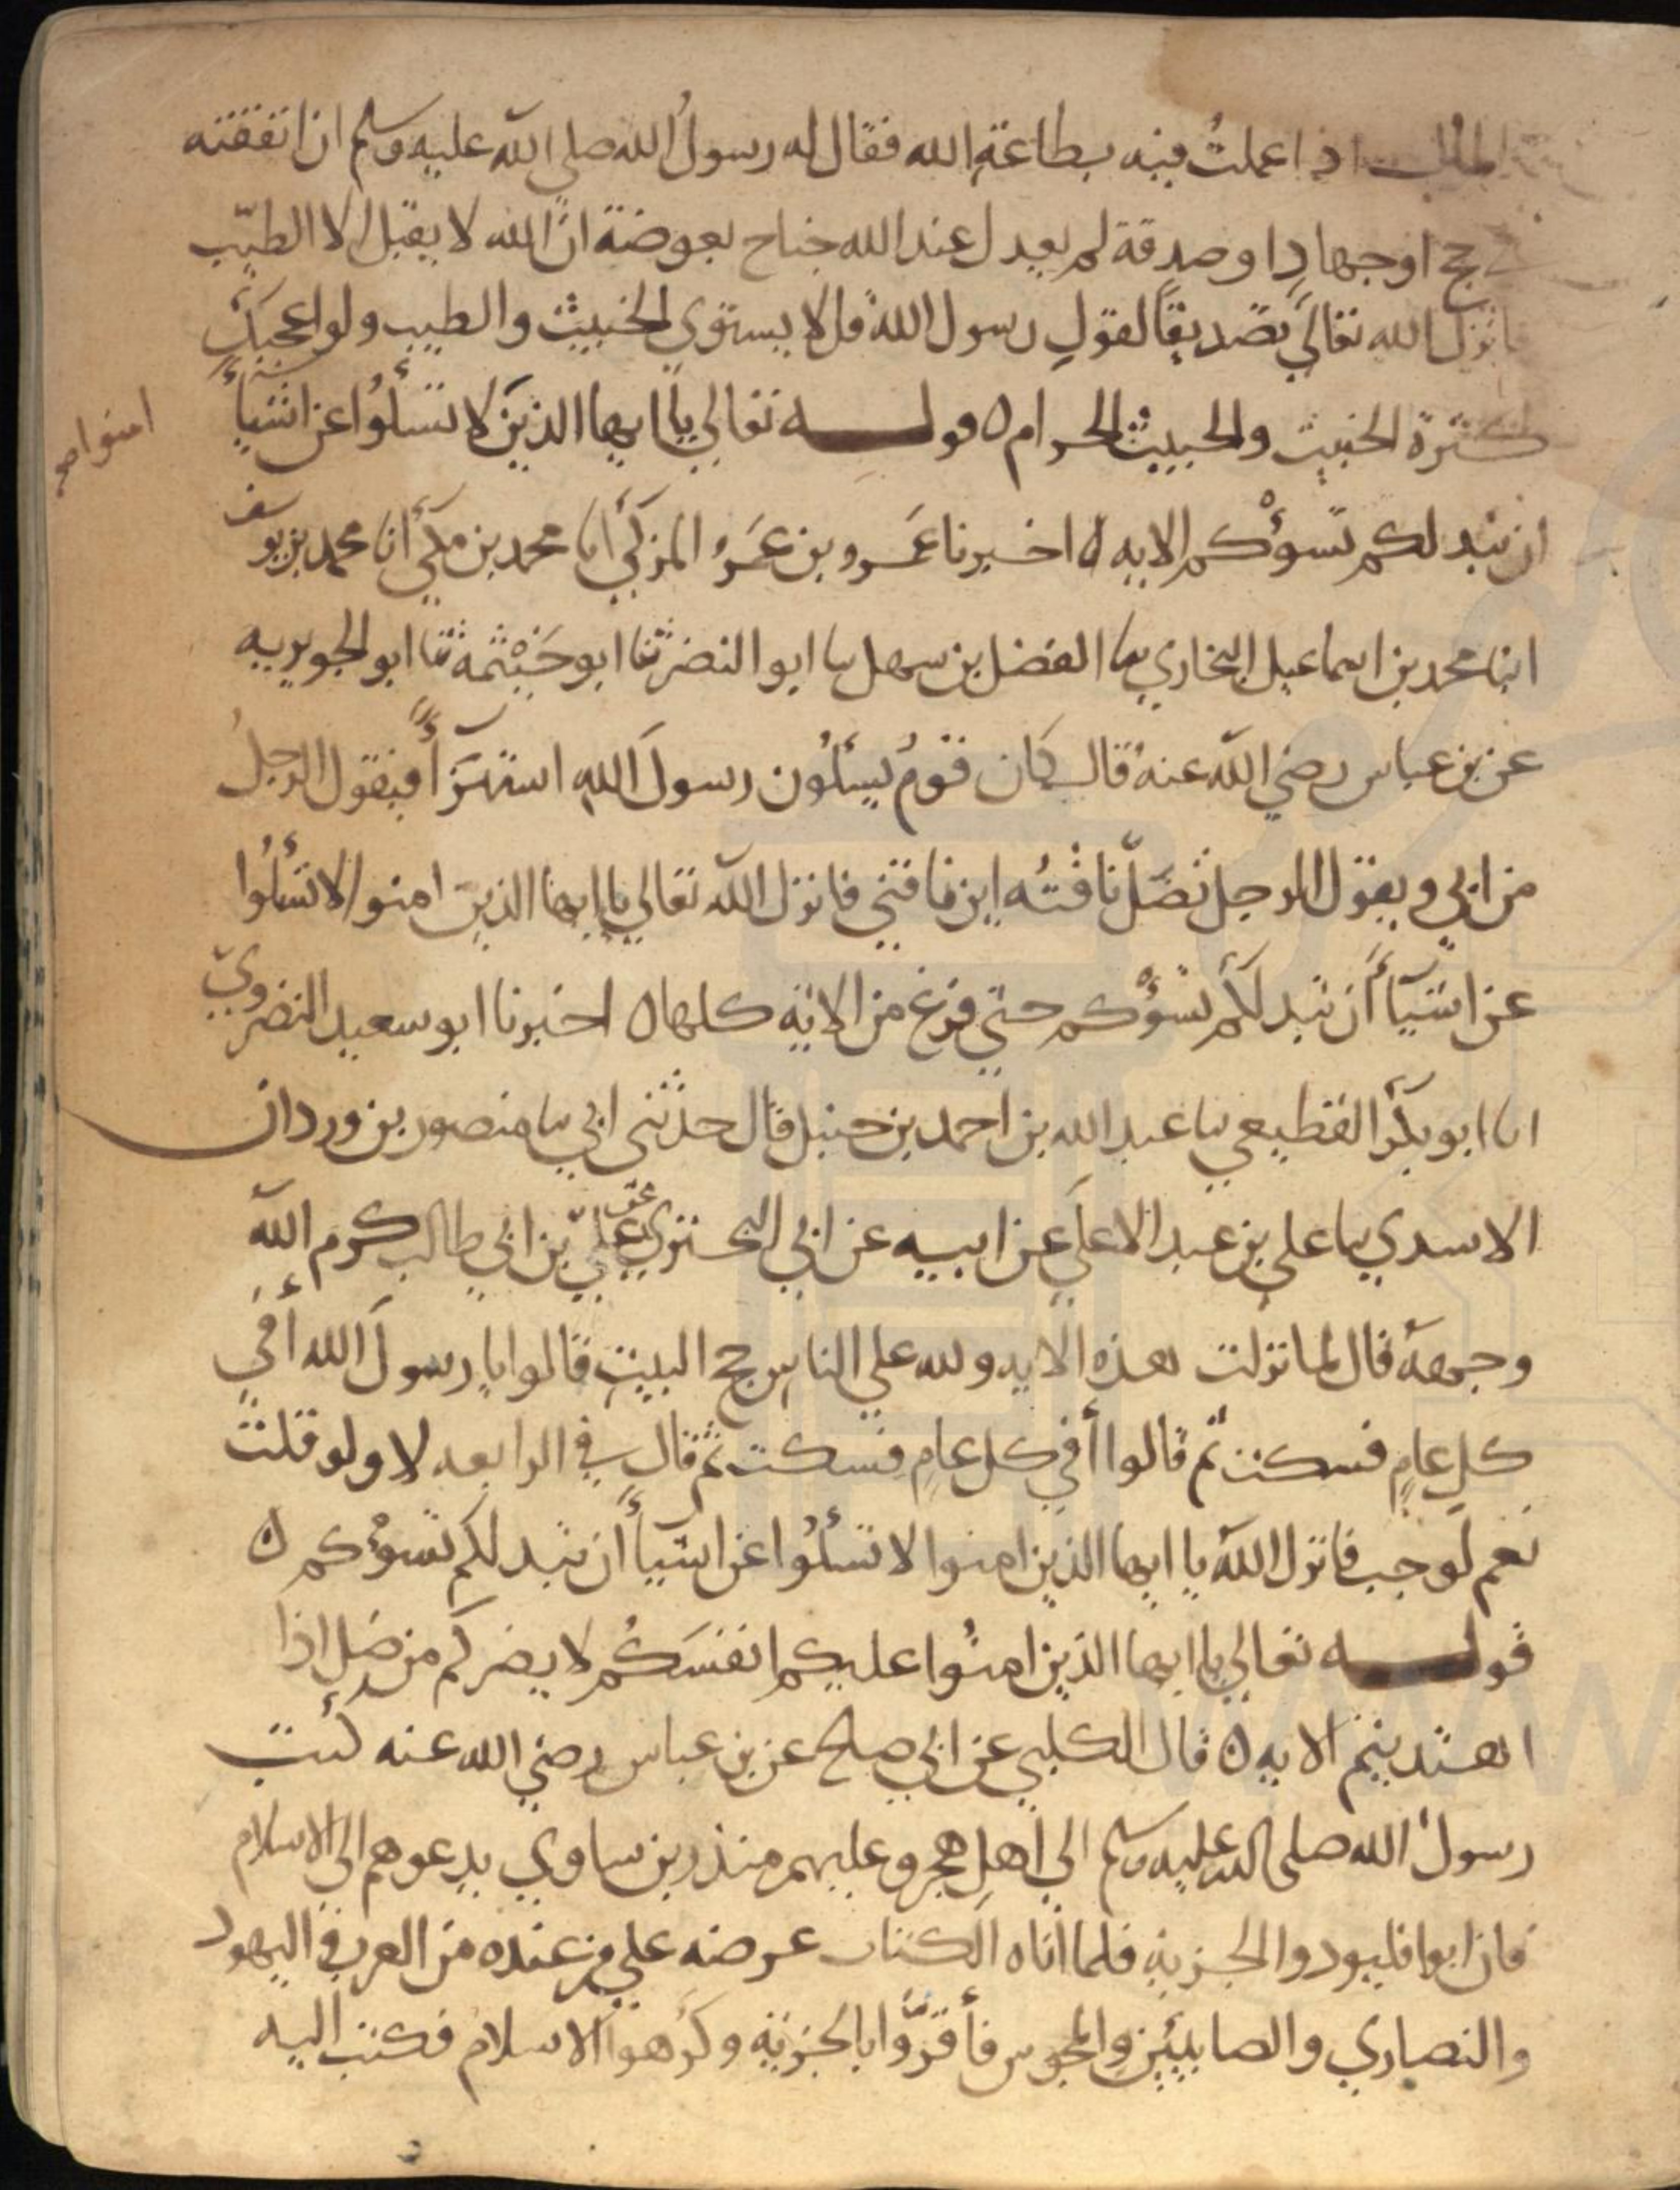 المال اذا عملتُ فيه بطاعة الله فقال له رسولُ الله صلي الله عليه وسلم ان انفقته
حج او جهادِ او صدقة لم يعدل عند الله جناح بعوضة ان الله لا يقبل الا الطيّب
فانزل الله تعالي تصديقاً لقولِ رسول الله قل لا يستوي الخبيث والطيب ولو اعجبك
كثرة الخبيث والخبيث الحرام ه قولـــه تعالي يا ايها الذين لا تسئلُوا عن اشيآء
امنوا صح
ان تبد لكم تسوءْكم الايه ه اخبرنا عَمرو بن عمَرو المزكي أنا محمد بن مكي أنا محمد بن يوسف
انبا محمد بن اسماعيل البخاري ثنا الفضل بن سهل ثنا ابو النضر ثنا ابو خَيْثمه ثنا ابو الجويريه
عن بن عباس رضي الله عنهُ قال كان قومُ يسئلُون رسولَ اللهِ استهزآءً فيقول الرجلُ
من ابي ويقول الرجل تضلّ ناقتُه اين ناقتي فانزل الله تعالي يا ايها الذين امنوا لا تسئلُوا
عن اشيآء ان تبد لكم تسوءْكم حتي فرغ من الاية كلها ه اخبرنا ابو سعيد النضرويّ
انا ابو بكر القطيعي ثنا عبد الله بن احمد بن حنبل قال حدثني ابي ثنا منصور بن وردان
الاسدي ثنا علي بن عبد الاعلي عن ابيه عن ابي البختري عن عليّ بن ابي طالب كرم الله
وجههُ قال لما نزلت هذه الايه ولله علي الناسِ حج البيتِ قالوا يا رسولَ الله أفي
كلِ عامٍ فسكت ثم قالوا أفي كل عامٍ فسكت ثم قال في الرابعه لا ولو قلت
نعم لوجب فانزل الله يا ايها الذين امنوا لا تسئلُوا عن اشيآء ان تبد لكم تسوءْكم ه
قولـــه تعالي يا ايها الذين امنُوا عليكم انفسَكُم لا يضركم من ضل اذا
اهتديتم الايه ه قال الكلبي عن ابي صلح عن بن عباس رضي الله عنه كتب
رسولُ الله صلي الله عليه وسلم الي اهلِ هجر وعليهم منذر بن ساوي يدعوهم الي الاسلام
فان ابوا فليودوا الجزية فلما أتاه الكتاب عرضه علي من عنده من العرب واليهود
والنصاري والصابيين والمجوس فأقرّوا بالجزية وكرهوا الاسلام فكتب اليه